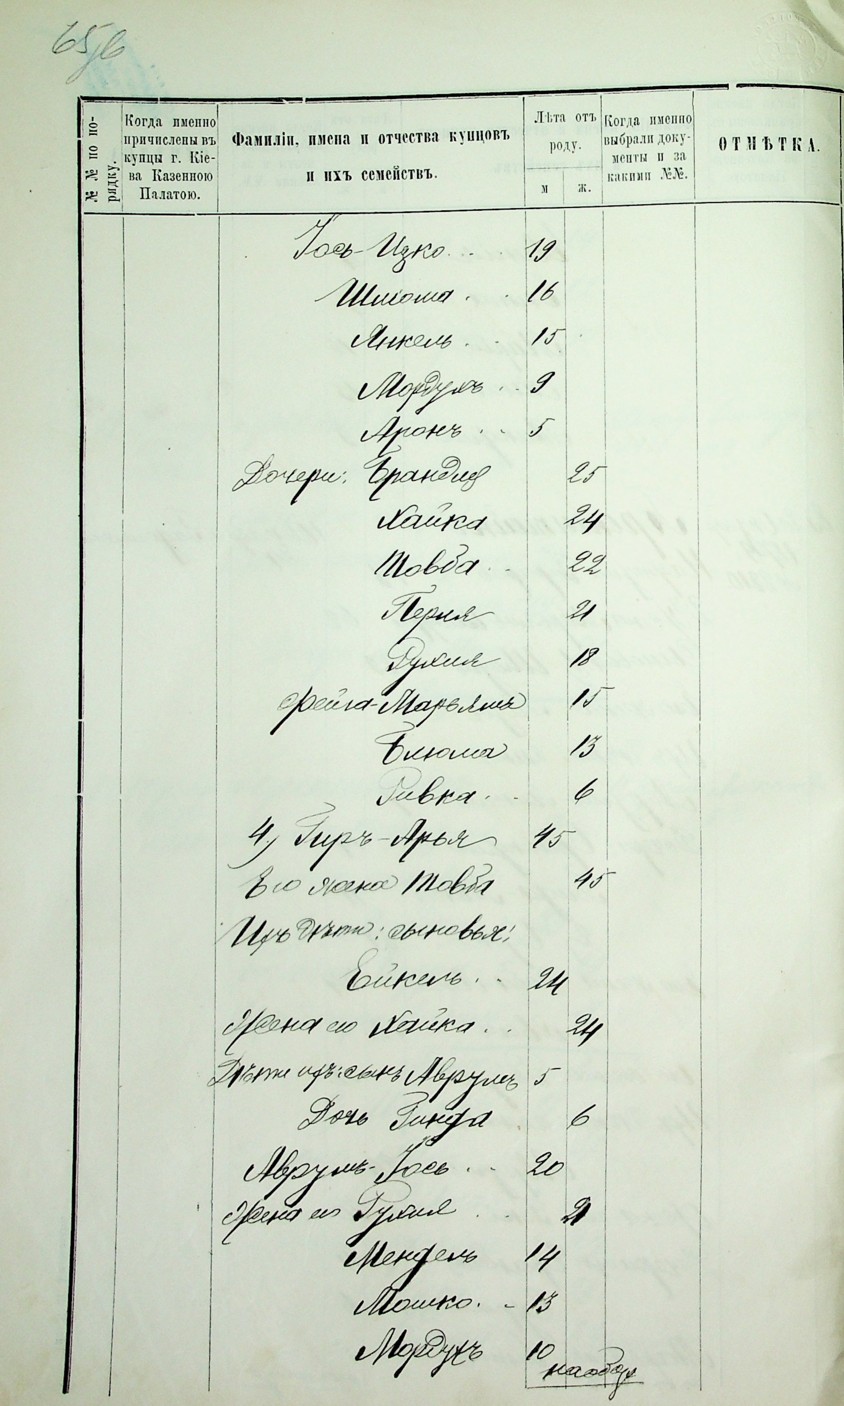 №№ по по-
рядку.
Когда именно
причислены въ
купцы г. Кіе-
ва Казенною
Палатою.
Фамиліи, имена и отчества купцовъ
и ихъ семействъ.
Лѣта отъ
роду.
м ж.
Когда именно
выбрали доку-
менты и за
какими №№.
ОТМѢТКА.
Іось-Ицко 19
Шліома 16
Янкель 15
Мордухъ 9
Аронъ 5
Дочери: Брандля 25
Хайка 24
Товба 22
Перля 21
Рухля 18
Фейга-Марьямъ 15
Блюма 13
Ривка 6
4) Гиръ-Арья 45
Его жена Товба 45
Ихъ дѣти: сыновья:
Ейкель 24
Жена его Хайка 24
Дѣти ихъ: сынъ Аврумъ 5
Дочь Гинда 6
Аврумъ-Іось 20
Жена его Рухля 21
Мендель 14
Мошко 13
Мордухъ 10
на обор